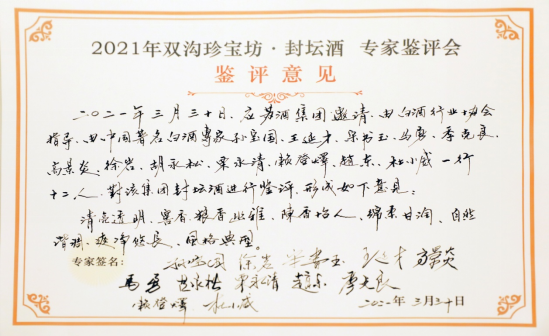 2021年双沟珍宝坊·封坛酒 专家鉴评会
鉴评意见
二〇二一年三月三十日,应苏酒集团邀请,由白酒行业协会
指导,由中国著名白酒专家孙宝国、王延才、宋书玉、马勇、季克良、
高景炎、徐岩、胡永松、栗永清、赖登燡、赵东、杜小威一行
十二人,对该集团封坛酒进行鉴评,形成如下意见:
清亮透明,窖香粮香幽雅,陈香怡人,绵柔甘润,自然
谐调,爽净悠长,风格典型。
专家签名:
孙宝国 徐岩 宋书玉 王延才 高景炎
马勇 胡永松 栗永清 赵东 季克良
赖登燡 杜小威 2021年3月30日